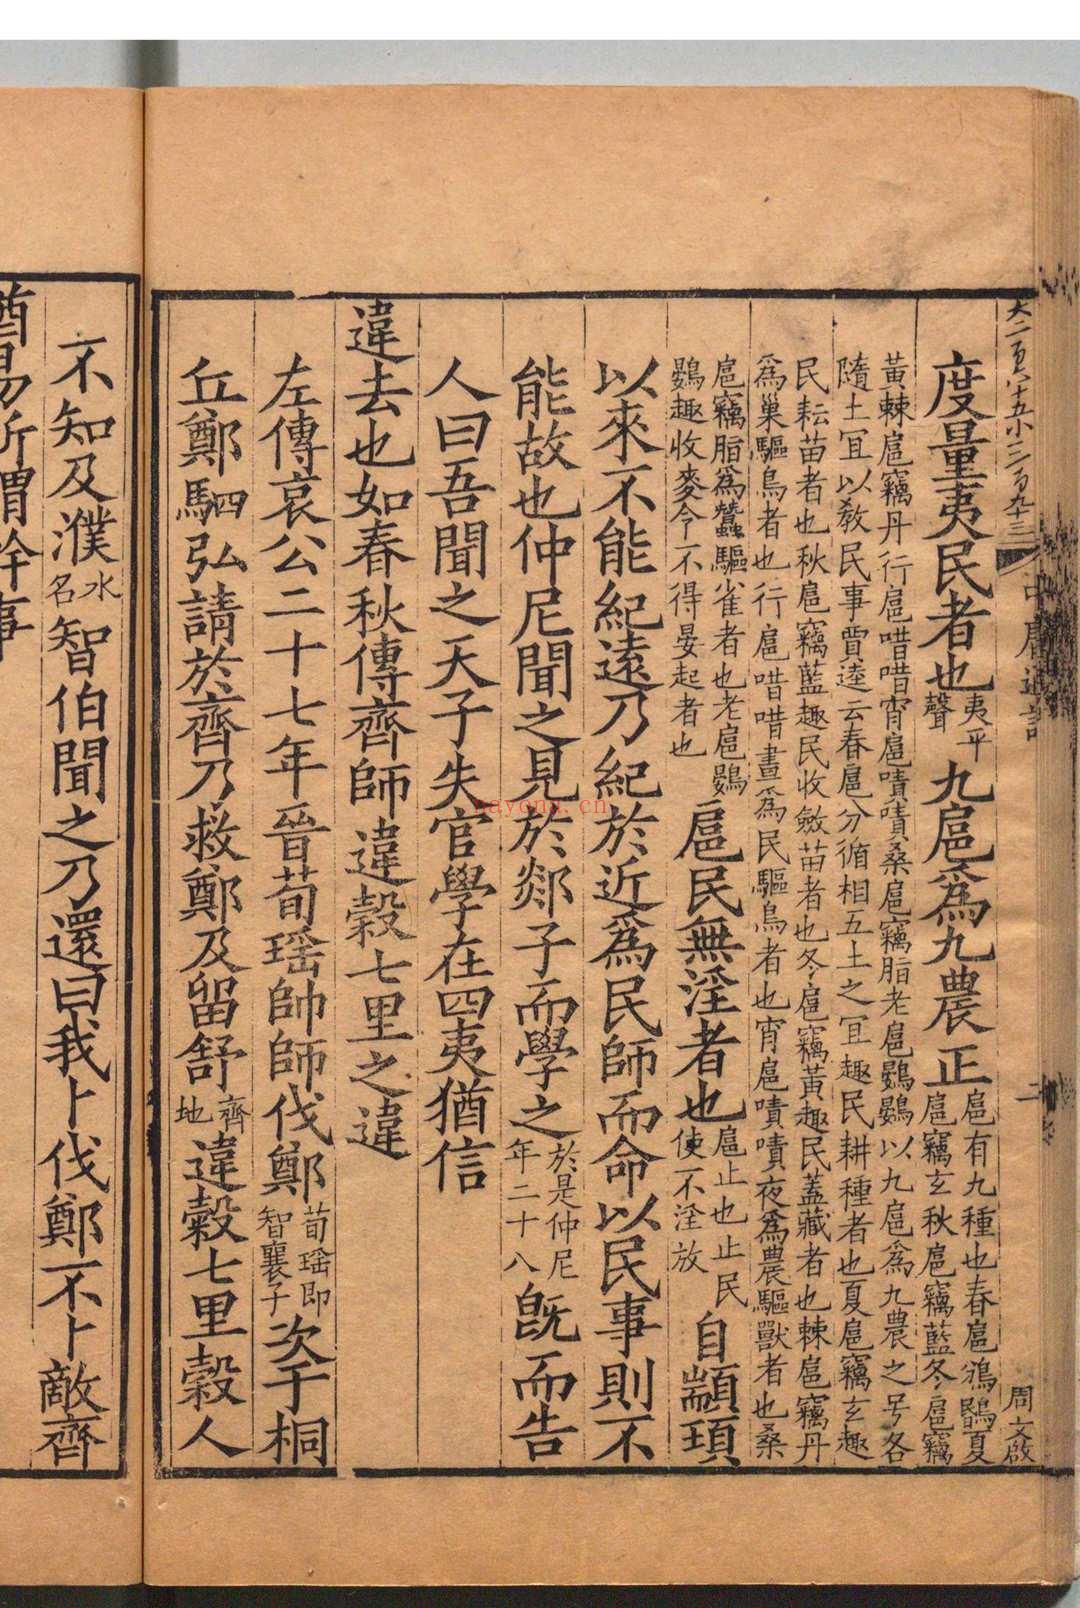 大二百六十五小三百九十三
中庸通證
二
周文啟
度量夷民者也夷平聲九扈爲九農正扈有九種也春扈鳻鶥夏扈竊玄秋扈竊藍冬扈竊
黃棘扈竊丹行扈唶唶宵扈嘖嘖桑扈竊脂老扈鷃鷃以九扈爲九農之号各
隨土宜以敎民事賈逵云春扈分循相五土之宜趣民耕種者也夏扈竊玄趣
民耘苗者也秋扈竊藍趣民收斂苗者也冬扈竊黃趣民蓋藏者也棘扈竊丹
爲巢驅鳥者也行扈唶唶晝爲民驅鳥者也宵扈嘖嘖夜爲農驅獸者也桑
扈竊脂爲蠶驅雀者也老扈鷃
鷃趣收麥令不得晏起者也
扈民無淫者也扈止也止民使不淫放自顓頊
以來不能紀遠乃紀於近爲民師而命以民事則不
能故也仲尼聞之見於郯子而學之於是仲尼年二十八旣而告
人曰吾聞之天子失官學在四夷猶信
違去也如春秋傳齊師違穀七里之違
左傳哀公二十七年晉荀瑶帥師伐鄭荀瑶即智襄子次于桐
丘鄭駟弘請於齊乃救鄭及留舒齊地違穀七里穀人
不知及濮水名智伯聞之乃還曰我卜伐鄭不卜敵齊